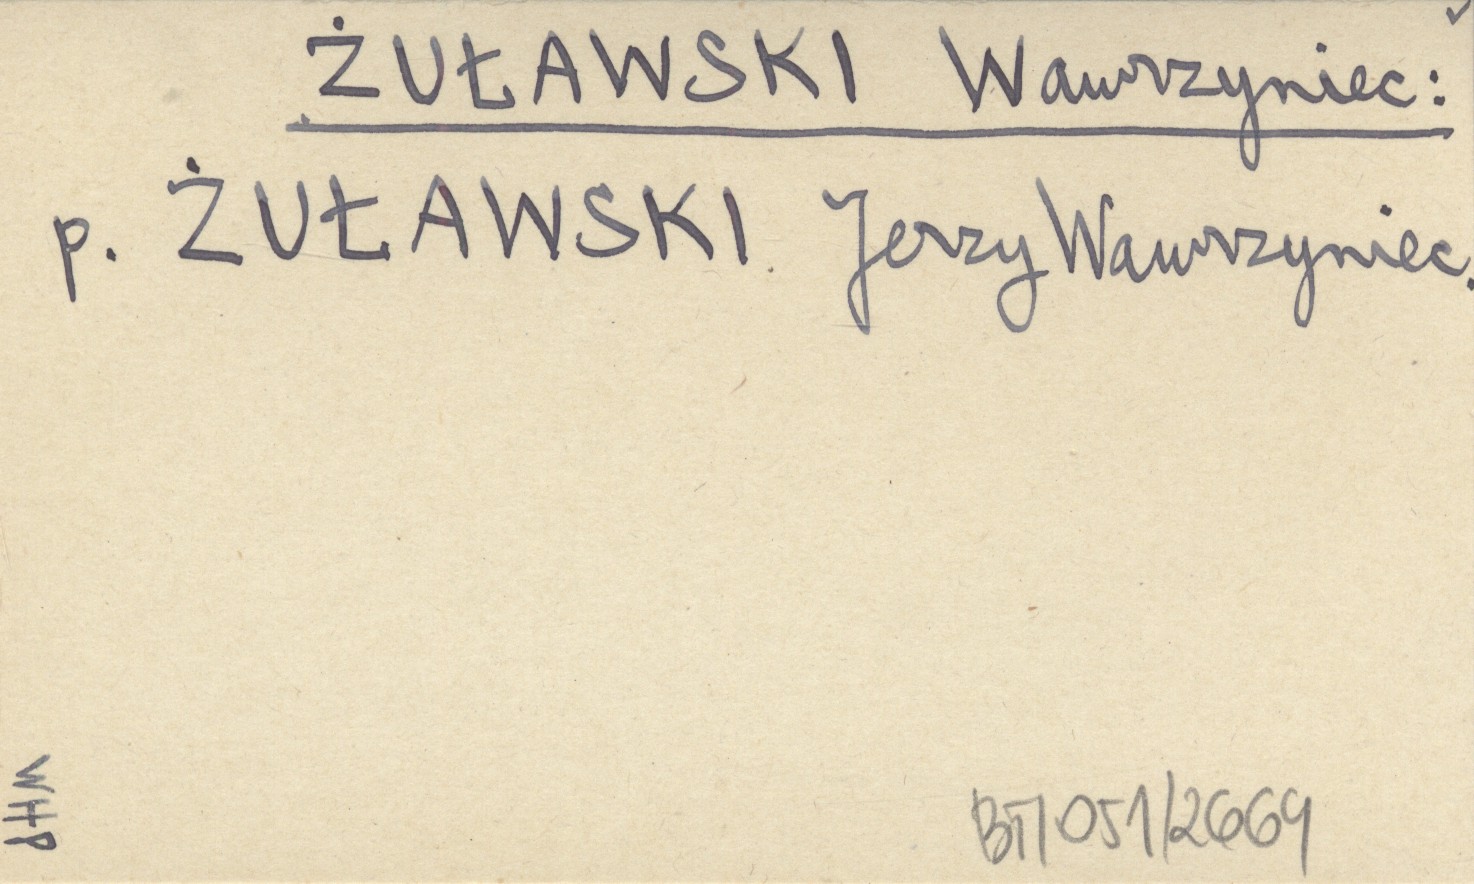 ŻUŁAWSKI Wawrzyniec:
p. ŻUŁAWSKI Jerzy Wawrzyniec.
WHP
051/2669